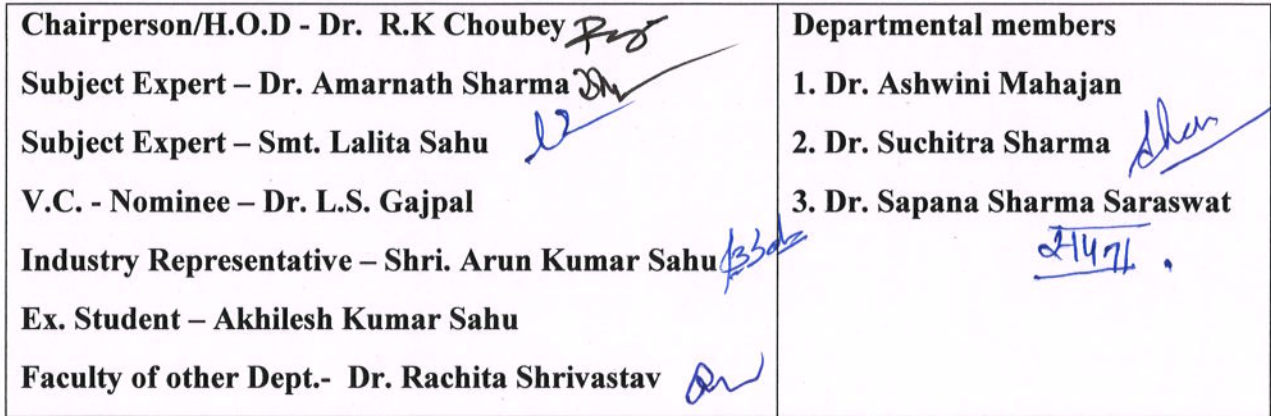 Chairperson/H.O.D - Dr. R.K Choubey
Subject Expert – Dr. Amarnath Sharma
Subject Expert – Smt. Lalita Sahu
V.C. - Nominee – Dr. L.S. Gajpal
Industry Representative – Shri. Arun Kumar Sahu
Ex. Student – Akhilesh Kumar Sahu
Faculty of other Dept.- Dr. Rachita Shrivastav
Departmental members
1. Dr. Ashwini Mahajan
2. Dr. Suchitra Sharma
3. Dr. Sapana Sharma Saraswat